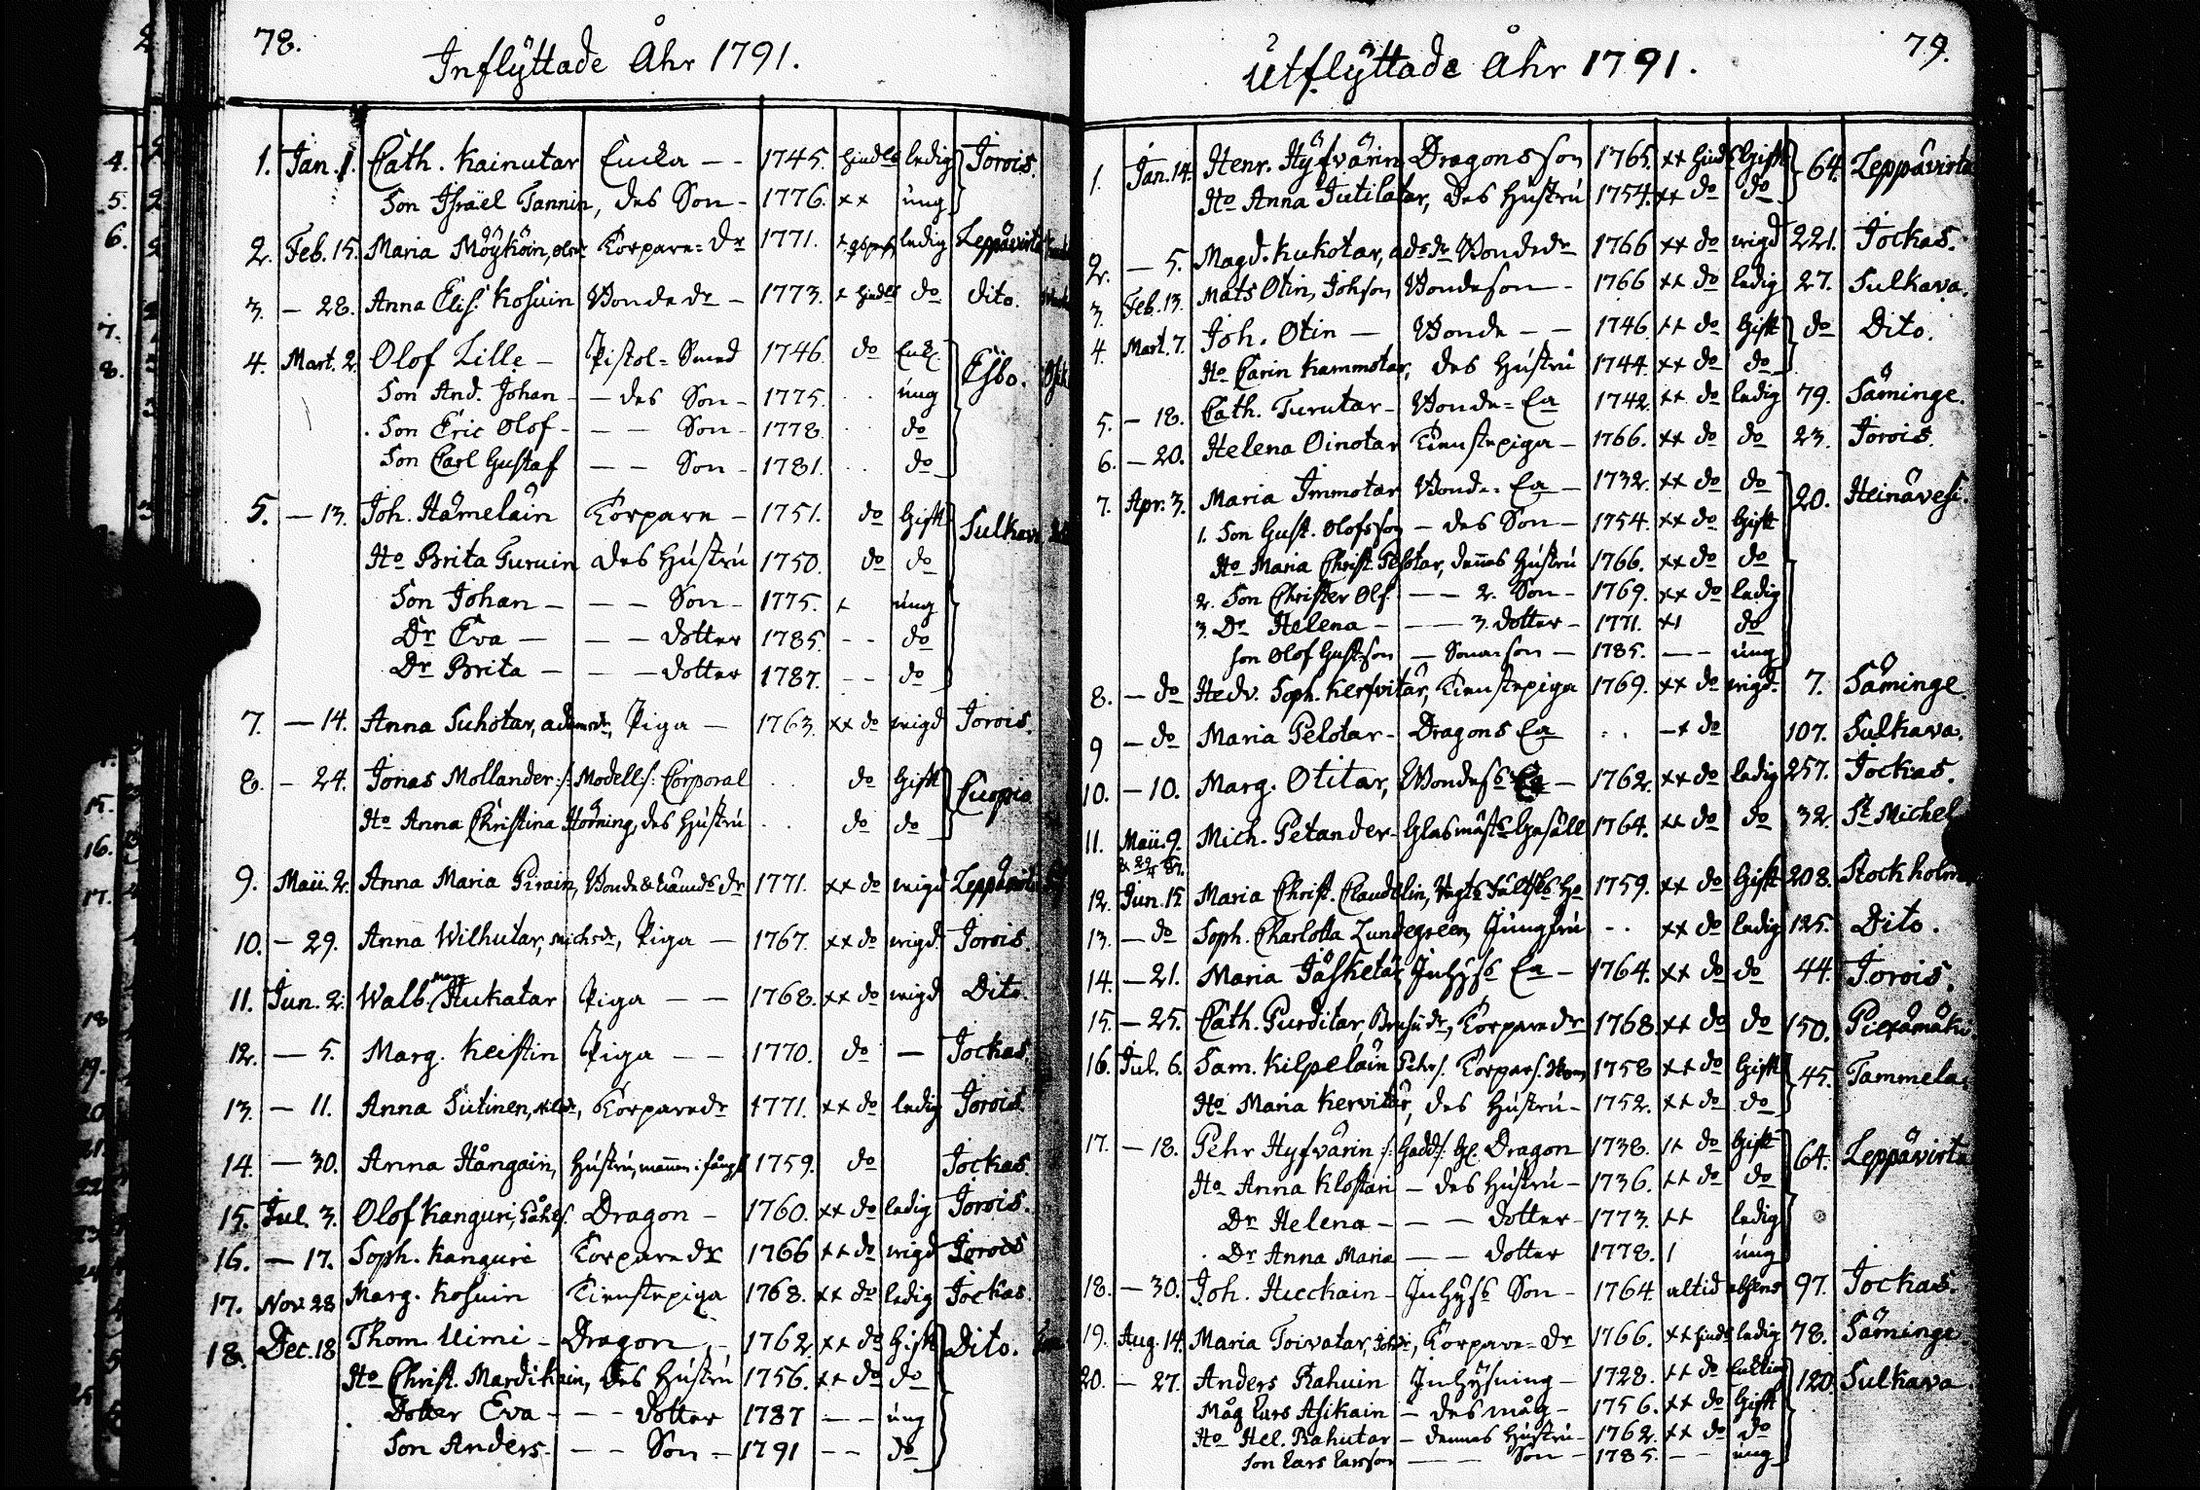 78.
Inflÿttade Åhr 1791.
1. Jan. 1. Cath. Kainutar Encka - - 1745. hindls ledig Jorois.
Son Israël Tannin, des Son - 1776. ++ ung
2. Feb. 15. Maria Möÿköin, Torpare=Dr 1771. ledig Leppävirta
3. - 28. Anna Elis. Kosuin Bonde dr - 1773. + hindls do dito.
4. Mart. 2. Olof Lille - Pistol=Smed 1746. do Enkl. Esbo.
Son And. Johan - - des Son - 1775. . . ung
Son Eric Olof - - - Son - 1778. . . do
Son Carl Gustaf - - Son - 1781. . . do
5. - 13. Joh. Hämeläin Torpare - 1751. do Gift Sulkava
Ho Brita Turuin des Hustru 1750. do do
Son Johan - - - Son - 1775. + ung
Dr Eva - - - dotter 1785. - - do
Dr Brita - - - dotter 1787. - - do
7. - 14. Anna Suhotar, adamsdr, Piga - 1763. ++ do wigd Jorois.
8. - 24. Jonas Mollander :/: Modell :/: Corporal . . do Gift Cuopio
Ho Anna Christina Horning, des Hustru . . do do
9. Maii. 2. Anna Maria Pirain, Bonde & Nämds dr 1771. ++ do wigd Leppävirta
10. - 29. Anna Wilhutar, michsdr, Piga - 1767. ++ do wigd. Jorois.
11. Jun. 2. Walb. Marg Hukatar Piga - - 1768. ++ do wigd Dito.
12. - 5. Marg. Keistin Piga - - 1770. do - Jockas.
13. - 11. Anna Sutinen, Torparedr 1771. ++ do ledig Jorois.
14. - 30. Anna Hångain, Hustru, mannen i fångsl 1759. do Jockas.
15. Jul. 3. Olof Kanguri, Dragon - 1760. ++ do ledig Jorois.
16. - 17. Soph. Kanguri Torparedr 1766 ++ do wigd Jorois
17. Nov. 28 Marg. Kosuin Tienstepiga 1768. ++ do ledig Jockas.
18. Dec. 18 Thom. Uimi - Dragon - 1762. ++ do Gift Dito.
Ho Christ. Mardikain, des Hustru 1756. ++ do do
Dotter Eva - - - dotter 1787 - - ung
Son Anders. - - Son - 1791 - - do
79.
Utflÿttade Åhr 1791.
1. Jan. 14. Henr. Hÿfvärin Dragons son 1765. ++ hindls Gift 64. Leppävirta
Ho Anna Jutilatar, des Hustru 1754. ++ do do
2. - 5. Magd. Kukotar, adsdr Bondedr 1766 ++ do wigd 221. Jockas.
3. Feb. 13. Mats Otin, Johson Bondeson - 1766 ++ do ledig 27. Sulkava.
4. Mart. 7. Joh. Otin - Bonde - - 1746 ++ do Gift do Dito.
Ho Carin Kammotar, des Hustru 1744. ++ do do
5. - 18. Cath. Turutar - Bonde=Ea 1742. ++ do ledig 79. Säminge.
6. - 20. Helena Oinotar Tienstepiga - 1766. ++ do do 23. Jorois.
7. Apr. 3. Maria Immotar Bonde=Ea - 1732. ++ do do 20. Heinävesi.
1. Son Gust. Olofsson - des Son - 1754. ++ do Gift
Ho Maria Christ. Pelotar, dennes Hustru 1766. ++ do do
2. Son Christer Olf. - - 2. Son - 1769. ++ do ledig
3. Dr Helena - - - 3. dotter - 1771. +1 do
Son Olof Gustson - Sonason - 1785. - - ung
8. - do Hedv. Soph. Kerfvitär, Tienstepiga 1769. ++ do wigd. 7. Säminge.
9 - do Maria Pelotar - Dragons Ea . . - + do 107. Sulkava.
10. - 10. Marg. Otitar, Bondess Ea - 1762. ++ do ledig 257. Jockas.
11. Maii. 9. Mich. Petander - Glasmästs Gesäll 1764. ++ do do 32. St Michel
12. Jun. 15. Maria Christ. Claudelin, 1759. ++ do Gift 208. Stockholm
13. - do Soph. Charlotta Lundegreen, Jungfru . . ++ do ledig 125. Dito.
14. - 21. Maria Jäsketär, Inhÿss Ea - 1764. ++ do do 44. Jorois.
15. - 25. Cath. Purditar, Torparedr 1768. ++ do do 150. Piexämäki.
16. Jul. 6. Sam. Kilpeläin 1758 ++ do Gift 45. Tammela.
Ho Maria Kervitär, des Hustru - 1752. ++ do do
17. - 18. Pehr Hyfvärin :/: Gadd :/: Dragon 1738. 1+ do Gift 64. Leppävirta
Ho Anna Klostari - des Hustru - 1736. ++ do do
Dr Helena - - - dotter - 1773. ++ ledig
Dr Anna Maria - - dotter 1778. 1 ung
18. - 30. Joh. Hieckain - Inhÿss Son - 1764. altid absens 97. Jockas.
19. Aug. 14. Maria Toivatar, Torpare=Dr 1766. ++ hindls ledig 78. Säminge
20. - 27. Anders Rahuin Inhÿsning - 1728. ++ do Enkling 120 Sulkava.
Måg Lars Asikain - des måg - 1756. ++ do Gift
Ho Hel. Rahutar - dennes Hustru - 1762. ++ do do
Son Lars Larsson - - Son - 1785. - - ung